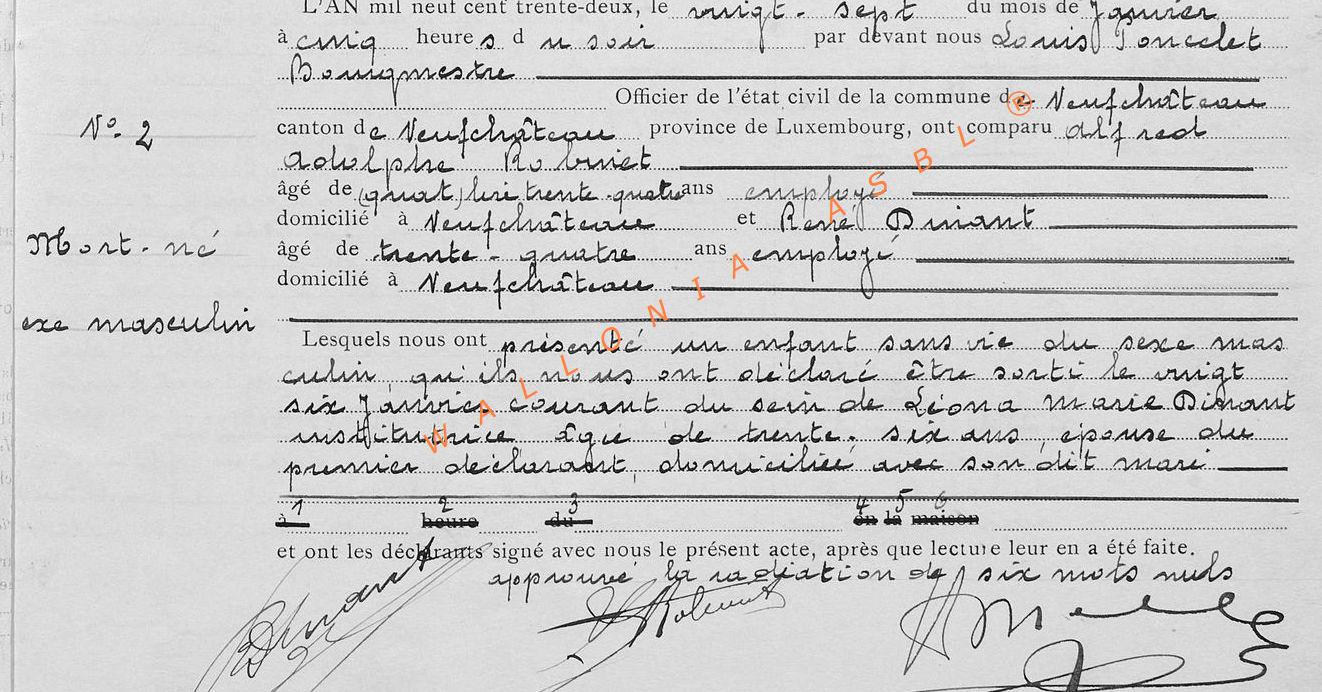 L'AN mil neuf cent trente-deux, le vingt-sept du mois de Janvier
à cinq heures du soir par devant nous Louis Poncelet
Bourgmestre
Officier de l'état civil de la commune de Neufchâteau
N° 2
canton de Neufchâteau province de Luxembourg, ont comparu Alfred
Adolphe Robinet
âgé de trente-quatre ans employé
domicilié à Neufchâteau et René Dinant
Mort-né
âgé de trente-quatre ans employé
domicilié à Neufchâteau
exe masculin
Lesquels nous ont présenté un enfant sans vie du sexe mas
culin, qu'ils nous ont déclaré être sorti le vingt
six Janvier courant du sein de Léona Marie Dinant
institutrice âgée de trente-six ans, épouse du
premier déclarant, domiciliée avec son dit mari
1 2 3 4 5 6
à heure du en la maison
et ont les déclarants signé avec nous le présent acte, après que lecture leur en a été faite.
approuvé la radiation de six mots nuls
RDinant
Robinet
WALLONIA ASBL ®